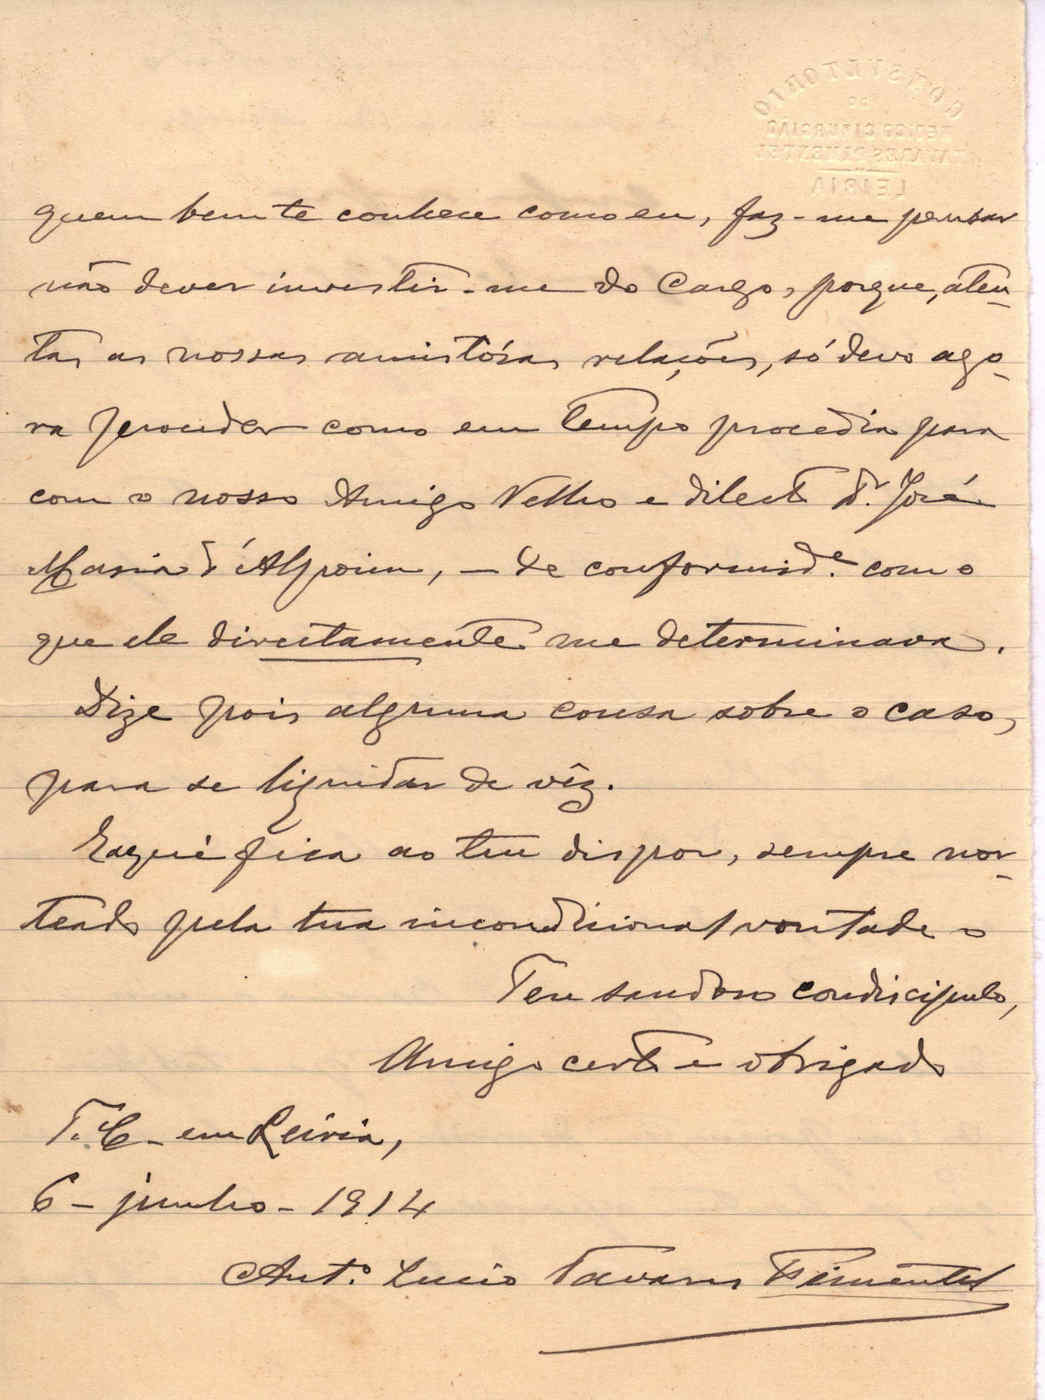 CONSULTORIO
DO
MEDICO CIRURGIÃO
TAVARES PIMENTEL
LEIRIA
quem bem te conhece como eu, faz-me pensar
não dever investir-me do cargo, porque, aten-
tas as nossas amistósas relações, só devo ago-
ra proceder como em tempo procedia para
com o nosso Amigo Velho e dilecto Dr. José
Maria d'Alpoim, – de conformid.e com o
que ele directamente me determinava.
Dize pois alguma cousa sobre o caso,
para se liquidar de vêz.
E aqui fica ao teu dispor, sempre nor-
teado pela tua incondicional vontade o
Teu saudoso condiscipulo,
Amigo certo e obrigado
T. C. em Leiria,
6 - junho - 1914
Ant.o Lucio Tavares Pimentel